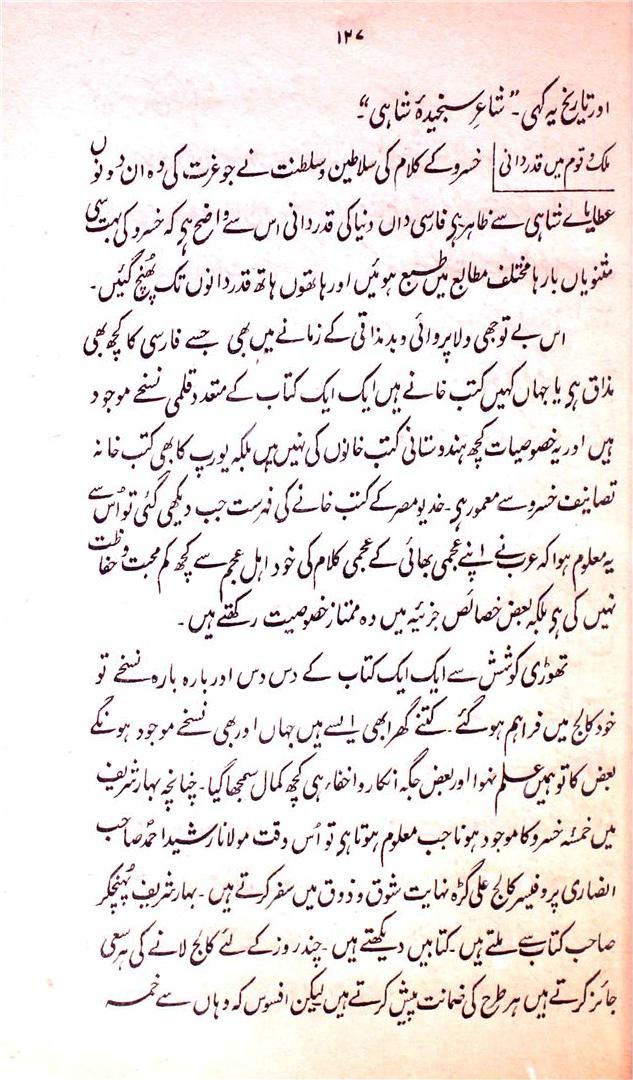 ۱۲۷
اور تاریخ یہ کہی۔ "شاعرِ سنجیدۂ شاہی"۔
ملک و قوم میں قدردانی خسرو کے کلام کی سلاطین و سلطنت نے جو عزت کی وہ ان دونوں
عطایاے شاہی سے ظاہر ہی فارسی داں دنیا کی قدردانی اس سے واضح ہی کہ خسرو کی بہت سی
مثنویاں بارہا مختلف مطابع میں طبع ہوئیں اور ہاتھوں ہاتھ قدردانوں تک پُہنچ گئیں۔
اس بے توجہی و لاپروائی و بدمذاقی کے زمانے میں بھی جسے فارسی کا کچھ بھی
مذاق ہی یا جہاں کہیں کتب خانے ہیں ایک ایک کتاب کے متعدد قلمی نسخے موجود
ہیں اور یہ خصوصیات کچھ ہندوستانی کتب خانوں کی نہیں ہیں بلکہ یورپ کا بھی کتب خانہ
تصانیف خسرو سے معمور ہی۔ خدیو مصر کے کتب خانے کی فہرست جب دیکھی گئی تو اُس سے
یہ معلوم ہوا کہ عرب نے اپنے عجمی بھائی کے عجمی کلام کی خود اہل عجم سے کچھ کم محبت و حفاظت
نہیں کی ہی بلکہ بعض خصائص جزئیہ میں وہ ممتاز خصوصیت رکھتے ہیں۔
تھوڑی کوشش سے ایک ایک کتاب کے دس دس اور بارہ بارہ نسخے تو
خود کالج میں فراہم ہو گئے۔ کتنے گھر ابھی ایسے ہیں جہاں اور بھی نسخے موجود ہونگے
بعض کا تو ہمیں علم نہوا اور بعض جگہ انکار و اخفاء ہی کچھ کمال سمجھا گیا۔ چنانچہ بہار شریف
میں خمسۂ خسرو کا موجود ہونا جب معلوم ہوتا ہی تو اُس وقت مولانا رشید احمدؐ صاحب
انصاری پروفیسر کالج علی گڑہ نہایت شوق و ذوق میں سفر کرتے ہیں۔ بہار شریف پُہنچکر
صاحب کتاب سے ملتے ہیں۔ کتابیں دیکھتے ہیں۔ چند روز کے لئے کالج لانے کی ہر سعی
جائز کرتے ہیں ہر طرح کی ضمانت پیش کرتے ہیں لیکن افسوس کہ وہاں سے خمسہ